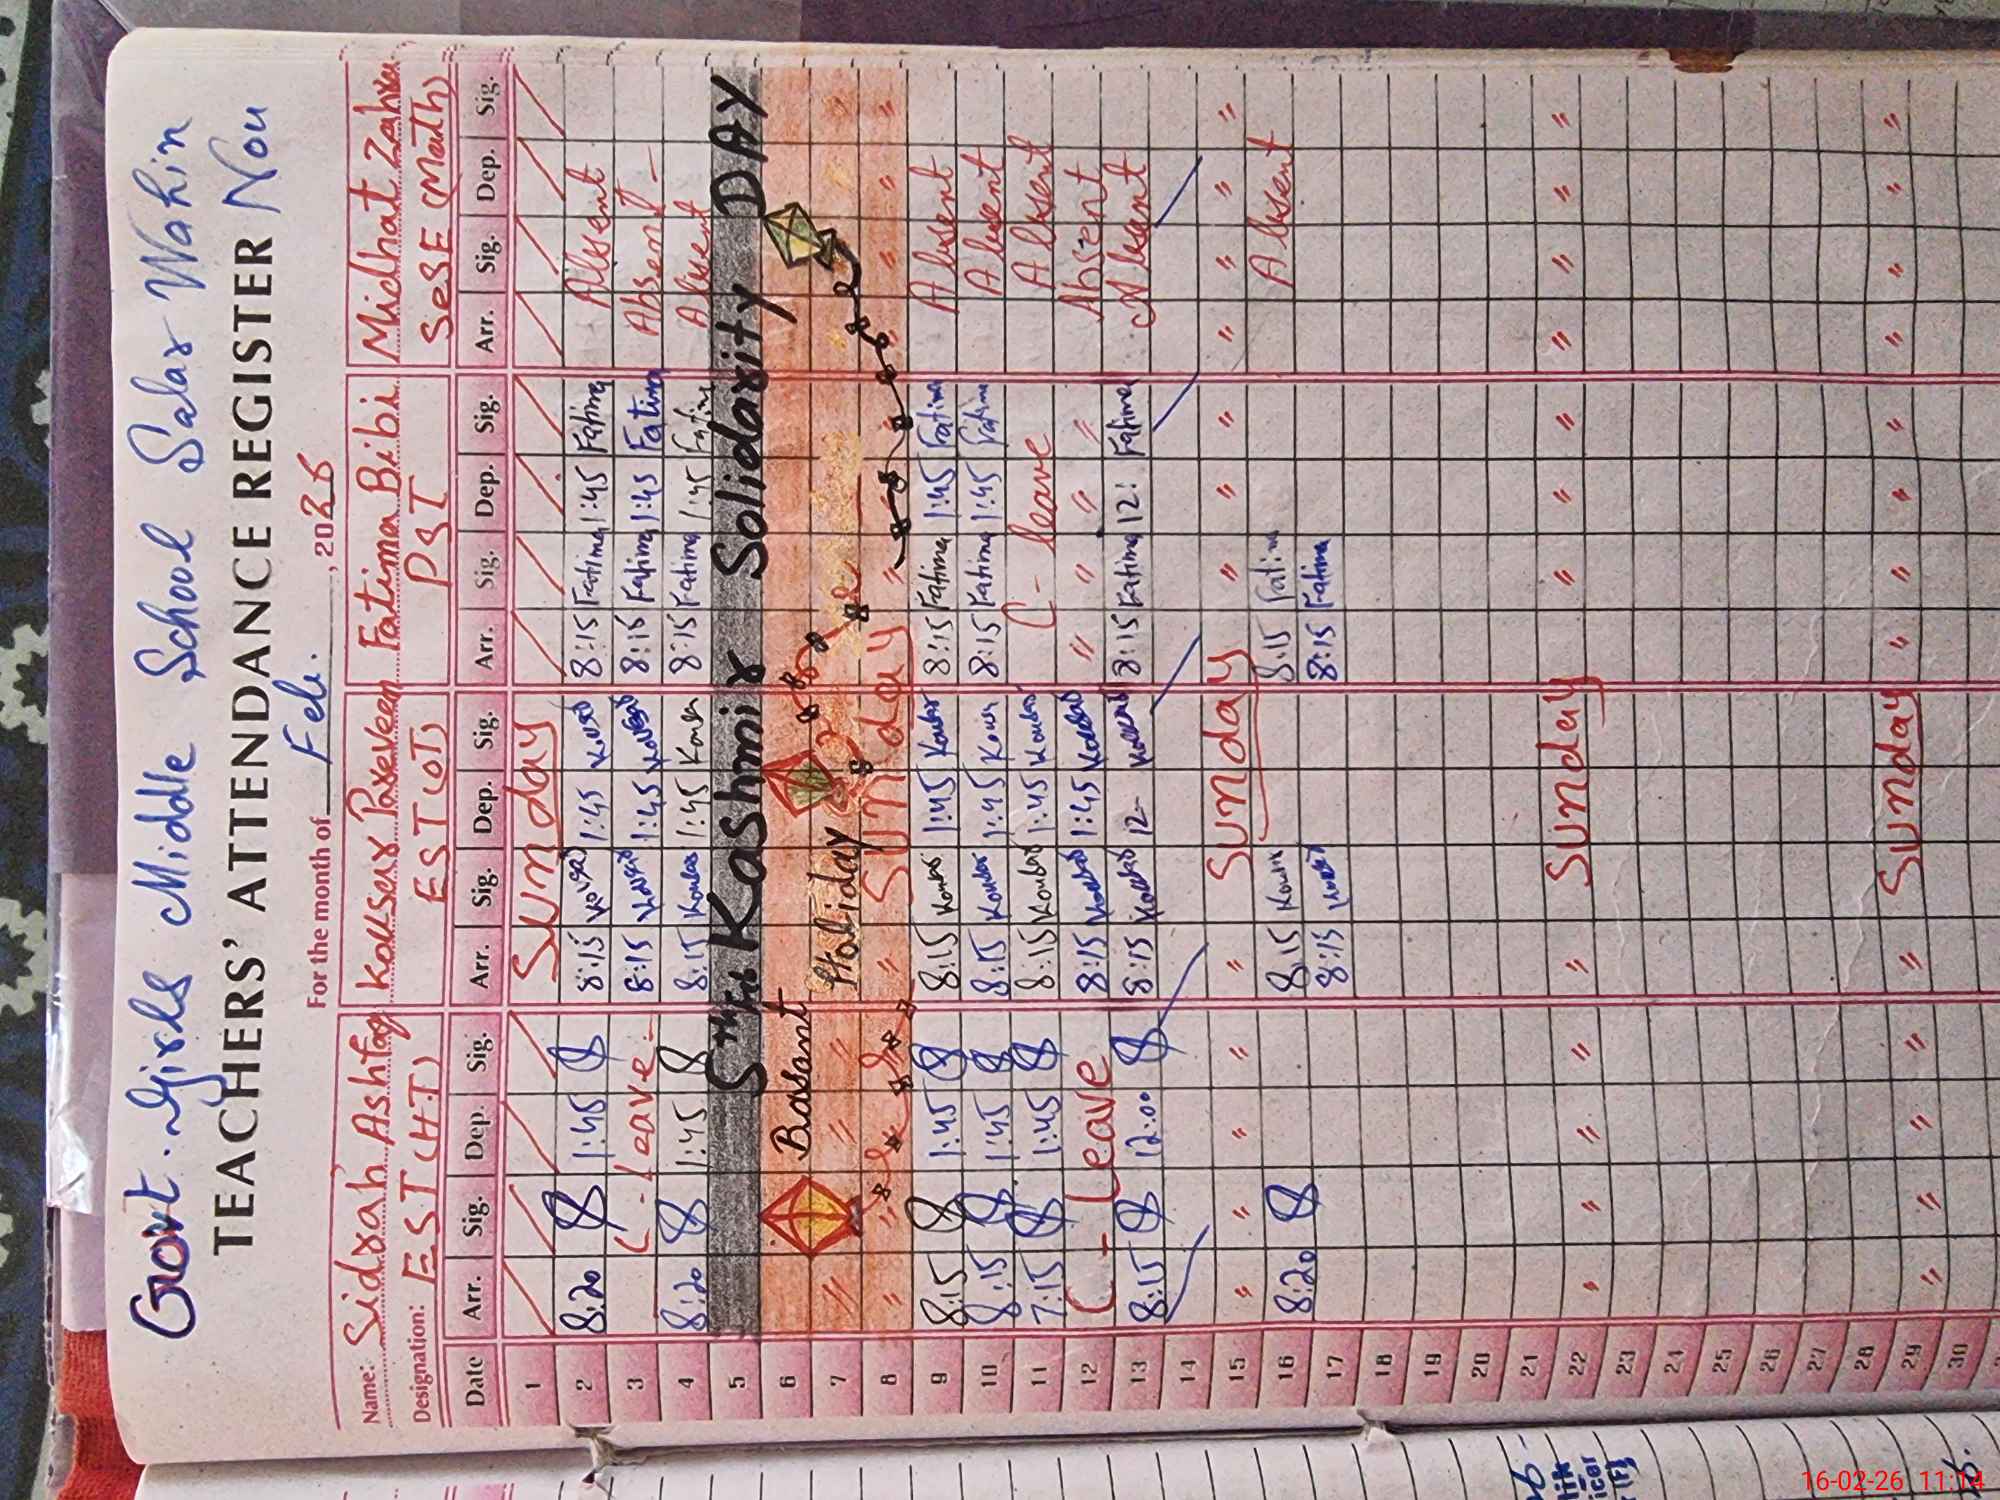 Govt. Girls Middle School Salar Wahin Nou
TEACHERS' ATTENDANCE REGISTER
For the month of Feb. , 2026
Name: Sidrah Ashfaq Kousar Parveen Fatima Bibi Midhat Zahra
Designation: EST (HT) EST (OT) PST SESE (Math)
Date Arr. Sig. Dep. Sig. Arr. Sig. Dep. Sig. Arr. Sig. Dep. Sig. Arr. Sig. Dep. Sig.
1 Sunday
2 8:20 1:45 8:15 Kousar 1:45 Kousar 8:15 Fatima 1:45 Fatima Absent
3 C - Leave - 8:15 Kousar 1:45 Kousar 8:15 Fatima 1:45 Fatima Absent -
4 8:20 1:45 8:15 Kousar 1:45 Kousar 8:15 Fatima 1:45 Fatima Absent
5 5th Feb Kashmir Solidarity DAY
6 Basant
7 " " Holiday
8 " " " Sunday " " " " " "
9 8:15 1:45 8:15 Kousar 1:45 Kousar 8:15 Fatima 1:45 Fatima Absent
10 8:15 1:45 8:15 Kousar 1:45 Kousar 8:15 Fatima 1:45 Fatima Absent
11 7:15 1:45 8:15 Kousar 1:45 Kousar C - leave Absent
12 C - Leave 8:15 Kousar 1:45 Kousar " " " " Absent
13 8:15 12:00 8:15 Kousar 12- Kousar 8:15 Fatima 12: Fatima Absent
14
15 " " " " " Sunday " " " " " " "
16 8:20 8:15 Kousar 8:15 Fatima Absent
17 8:15 Kousar 8:15 Fatima
18
19
20
21
22 " " " " " Sunday " " " " " " "
23
24
25
26
27
28
29 " " " " " Sunday " " " " " " " "
30
16-02-26 11:14